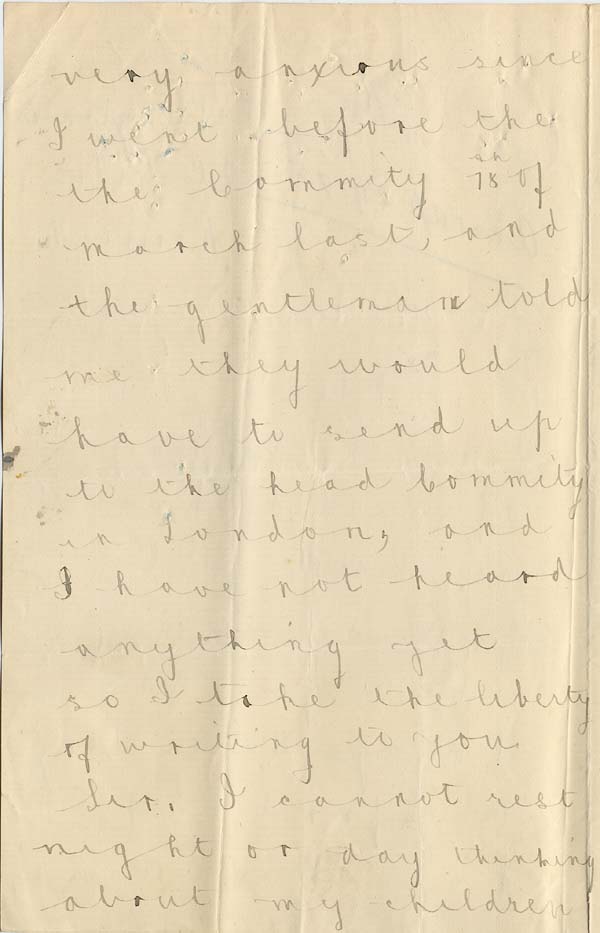 very anxious since
I went before the
the Commity 18th of
march last, and
the gentleman told
me they would
have to send up
to the head Commity
in London, and
I have not heard
anything yet
so I take the liberty
of writing to you
Sir. I cannot rest
night or day thinking
about my children